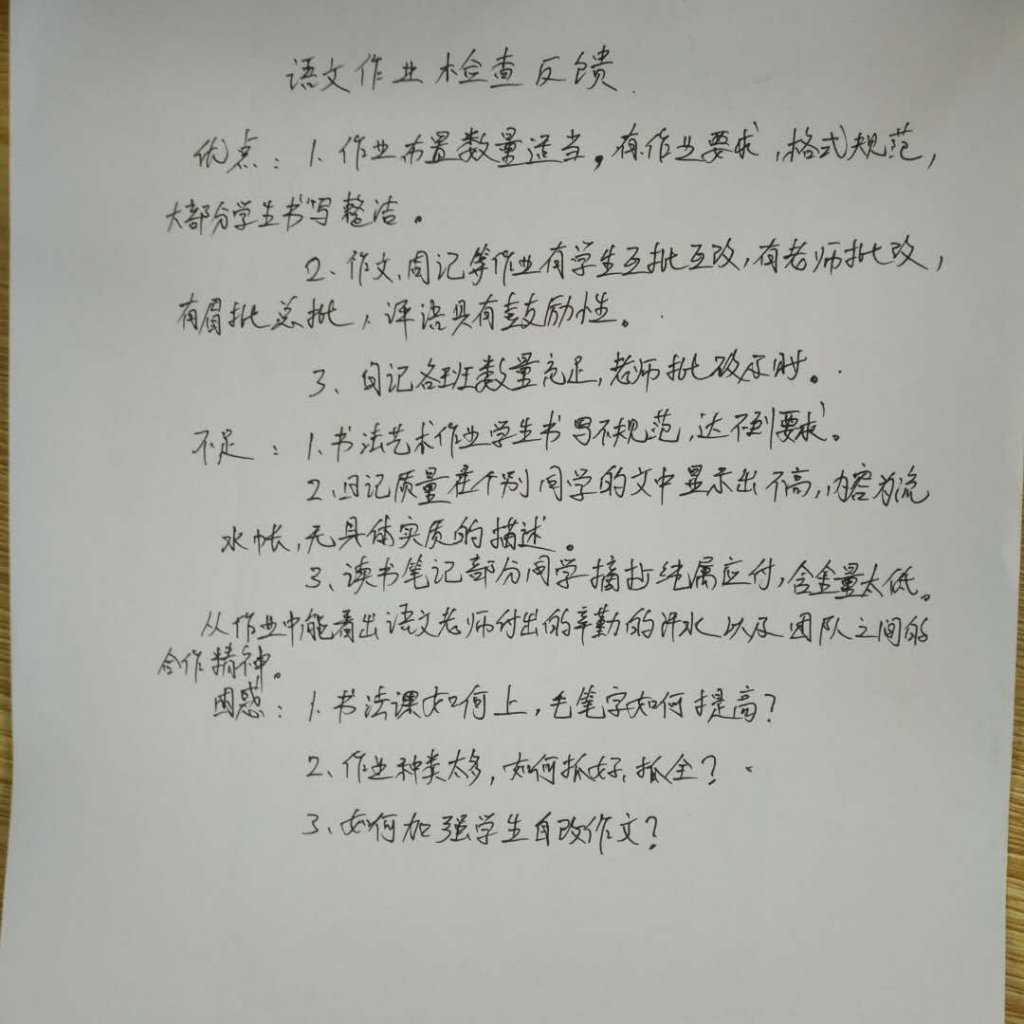 语文作业检查反馈.
优点：1.作业布置数量适当，有作业要求，格式规范，
大部分学生书写整洁。
2、作文、周记等作业有学生互批互改，有老师批改，
有眉批总批，评语具有鼓励性。
3、日记各班数量充足，老师批改及时。
不足：1.书法艺术作业学生书写不规范，达不到要求。
2、日记质量在个别同学的文中显示出不高，内容为流
水帐，无具体实质的描述。
3、读书笔记部分同学摘抄纯属应付，含金量太低。
从作业中能看出语文老师付出的辛勤的汗水以及团队之间的
合作精神。
困惑：1.书法课如何上，毛笔字如何提高？
2、作业种类太多，如何抓好、抓全？
3、如何加强学生自改作文？